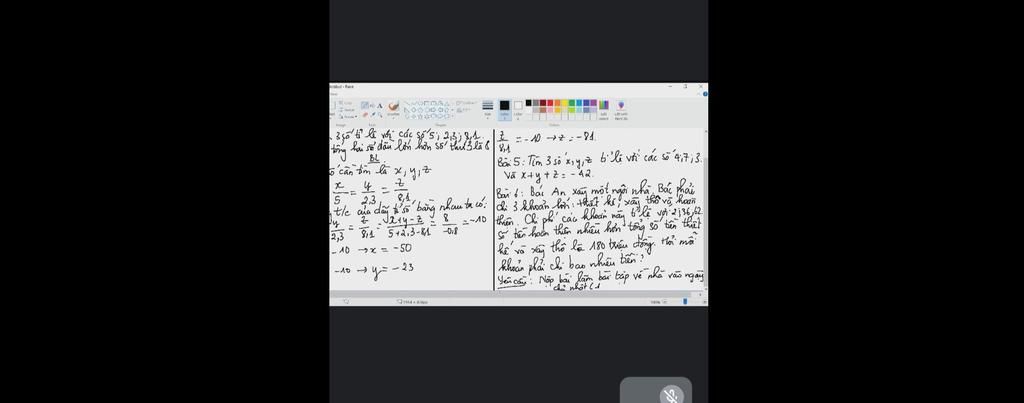 3 số tỉ lệ với các số 5; 2,3; 8,1
tổng hai số đầu lớn hơn số thứ 3 là 8
BL
số cần tìm là x, y, z
x/5 = y/2,3 = z/8,1
t/c của dãy tỉ số bằng nhau ta có:
y/2,3 = z/8,1 = x+y-z/5+2,3-8,1 = 8/-0,8 = -10
-10 → x = -50
-10 → y = -23
z/8,1 = -10 → z = -81.
Bài 5: Tìm 3 số x, y, z tỉ lệ với các số 4; 7; 3.
Và x + y + z = -42.
Bài 6: Bác An xây một ngôi nhà. Bác phải
chi 3 khoản lớn: thiết kế, xây thô và hoàn
thiện. Chi phí các khoản này tỉ lệ với 2; 36; 62.
Số tiền hoàn thiện nhiều hơn tổng số tiền thiết
kế và xây thô là 180 triệu đồng. Hỏi mỗi
khoản phải chi bao nhiêu tiền?
Yêu cầu: Nộp bài làm bài tập về nhà vào ngày
chủ nhật